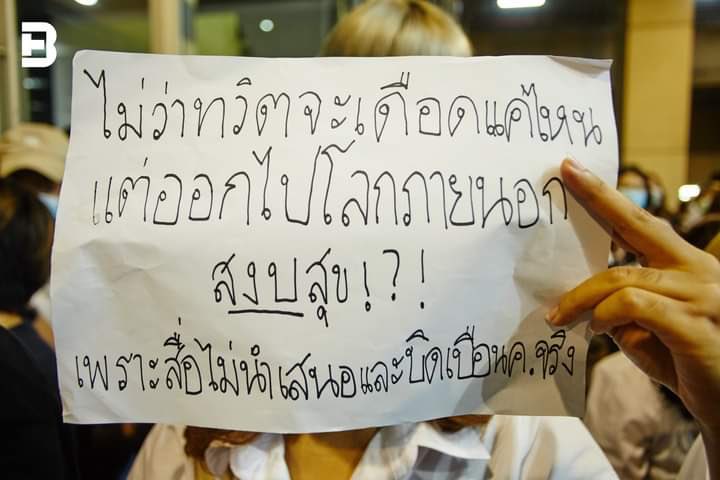 B
ไม่ว่าทวิตจะเดือดแค่ไหน
แต่ออกไปโลกภายนอก
สงบสุข!?!
เพราะสื่อไม่นำเสนอและบิดเบือนค.จริง